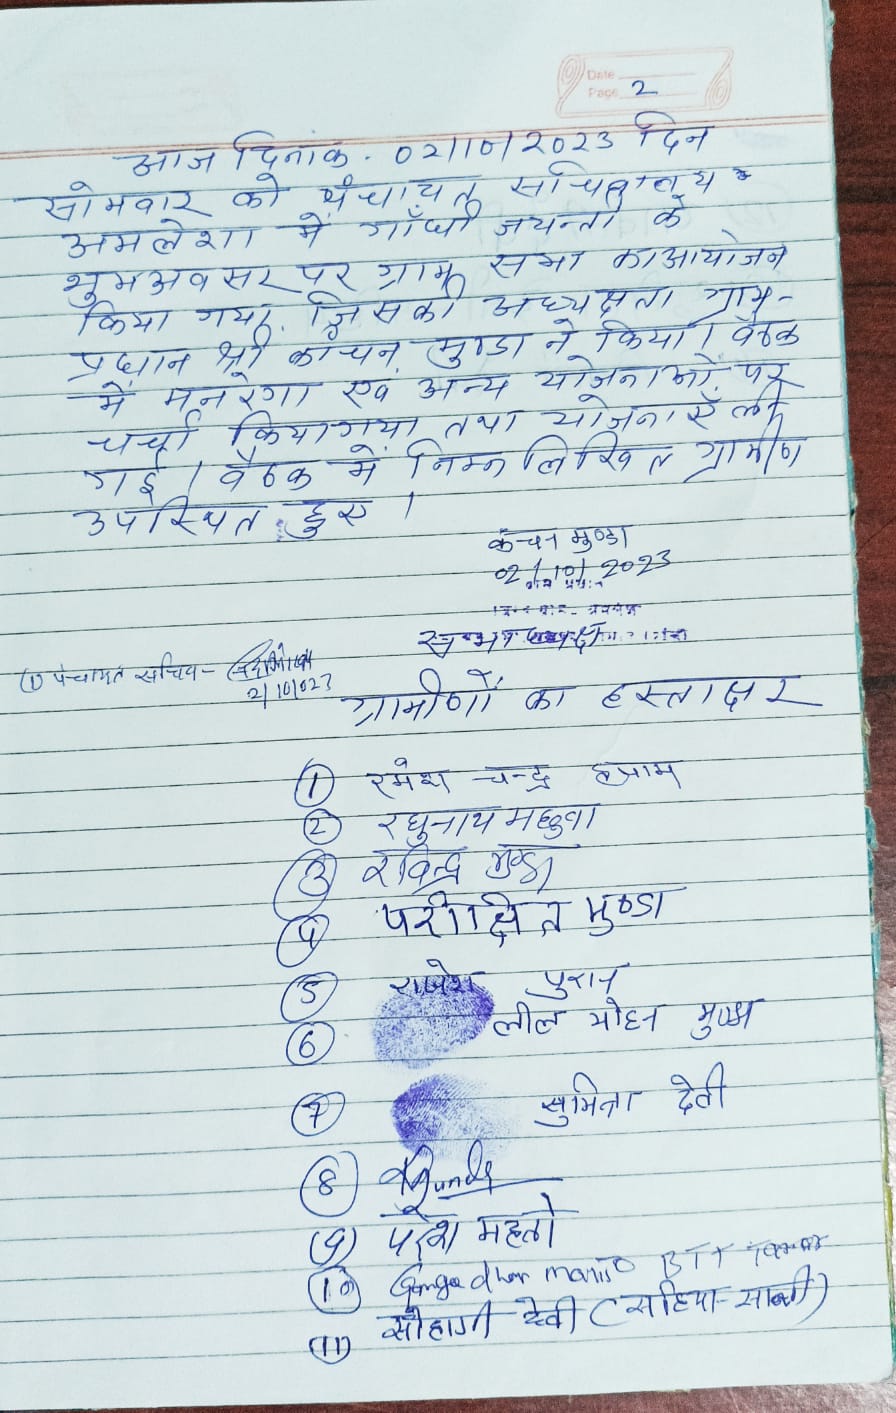 Date
Page 2
आज दिनाक. 02/10/2023 दिन
सोमवार को पंचायत सचिवालय
अमलेशा में गाँधी जयन्ती के
शुभअवसर पर ग्राम सभा का आयोजन
किया गया, जिसकी अध्यक्षता ग्राम-
प्रधान श्री कांचन मुण्डा ने किया। बैठक
में मनरेगा एवं अन्य योजनाओं पर
चर्चा किया गया तथा योजनाएँ ली
गई। बैठक में निम्न लिखित ग्रामीण
उपस्थित हुए।
कंचन मुण्डा
02/10/2023
ग्राम प्रधान
(1) पंचायत सचिव-
2/10/023
ग्रामीणों का हस्ताक्षर
1 रमेश चन्द्र
2 रघुनाथ मछुवा
3 रविन्द्र मुण्डा
4 परीक्षित मुण्डा
5 राजेश पुरान
6 लील मोहन मुण्डा
7 सुमित्रा देवी
8
(9) परेश महतो
10 Gangadhar BTT
(11) सोहागी देवी (सहिया-साथी)